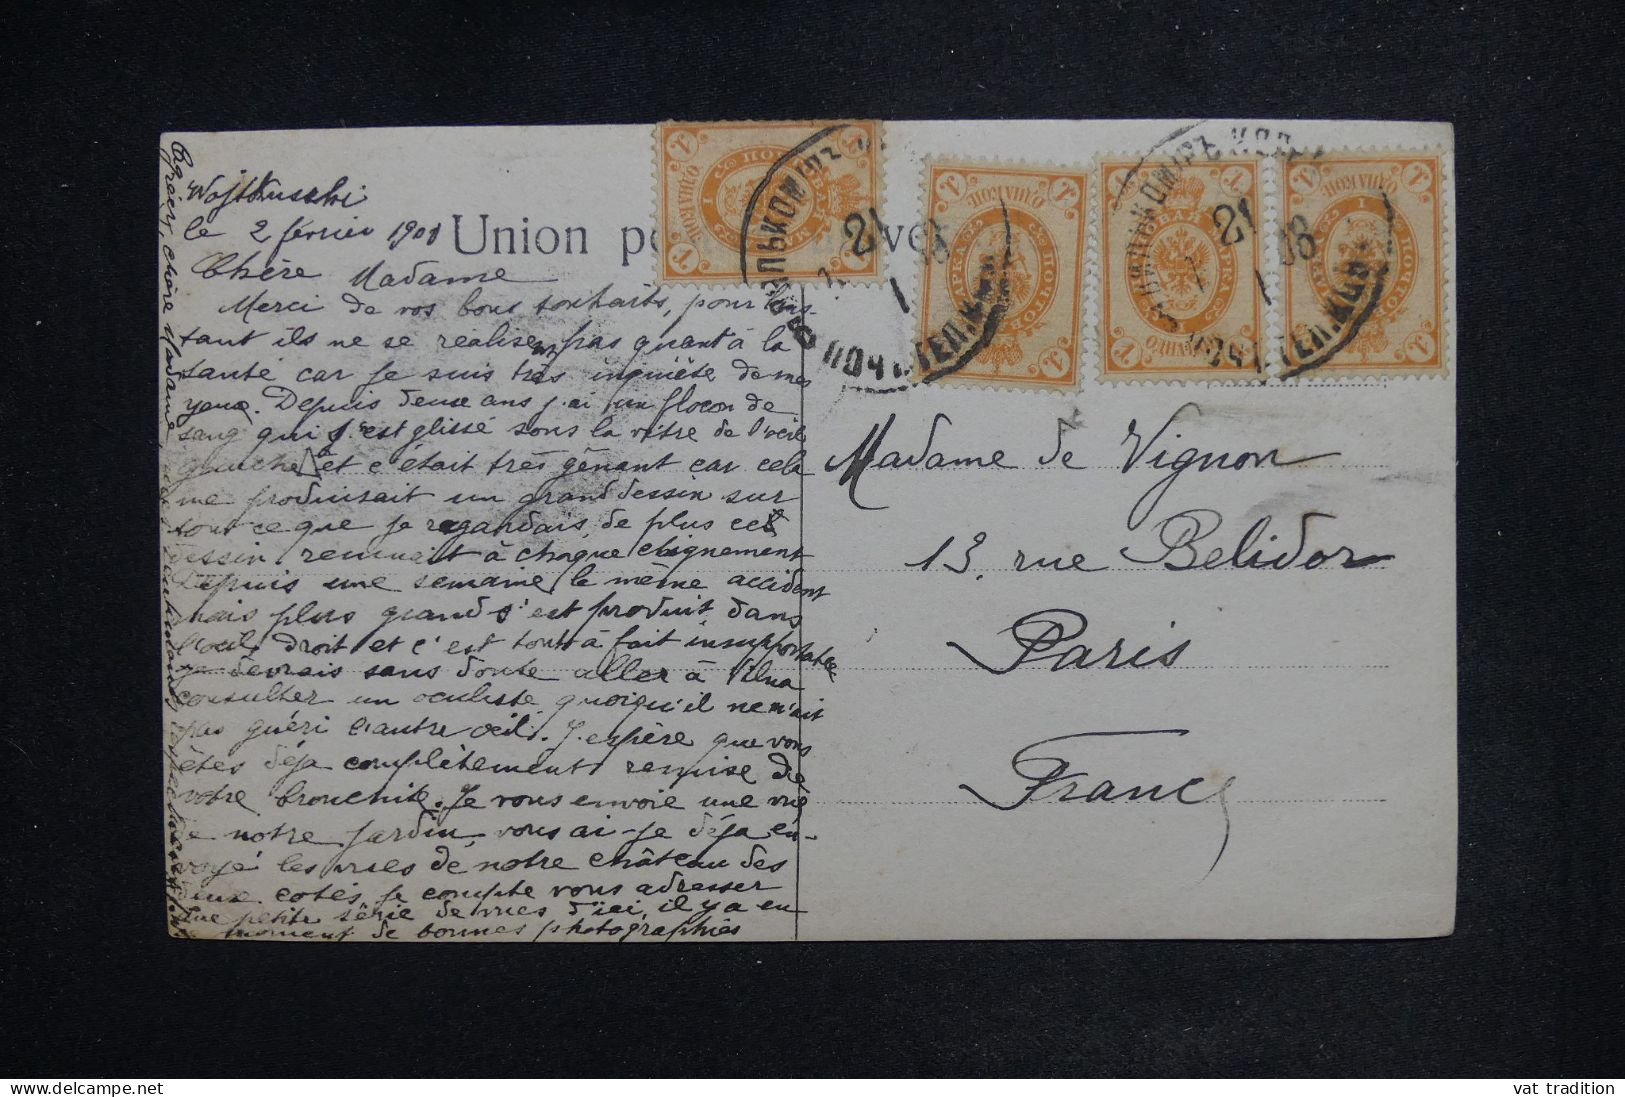 Wojtkuschki
le 2 février 1908
Union
Chère Madame
Merci de vos bons souhaits, pour l'ins-
tant ils ne se réalisent pas quant à la
santé car je suis très inquiète de mes
yeux. Depuis deux ans j'ai un flocon de
sang qui s'est glissé sous la vitre de l'œil
gauche et c'était très gênant car cela
me produisait un grand dessin sur
tout ce que je regardais, de plus ce
dessin remuait à chaque clignement
Depuis une semaine le même accident
mais plus grand s'est produit dans
l'œil droit et c'est tout à fait insupportable
je devrais sans doute aller à Vilna
consulter un oculiste quoiqu'il ne m'ait
pas guéri l'autre œil. J'espère que vous
êtes déjà complètement remise de
votre bronchite. Je vous envoie une vue
de notre jardin, vous ai-je déjà en-
voyé les vues de notre château des
deux cotés, je compte vous adresser
une petite série de vues d'ici, il y a en
ce moment de bonnes photographies
Agréez, chère Madame,
Madame de Vignon
13, rue Belidor
Paris
France
21
1
08
21
1
08
vat tradition